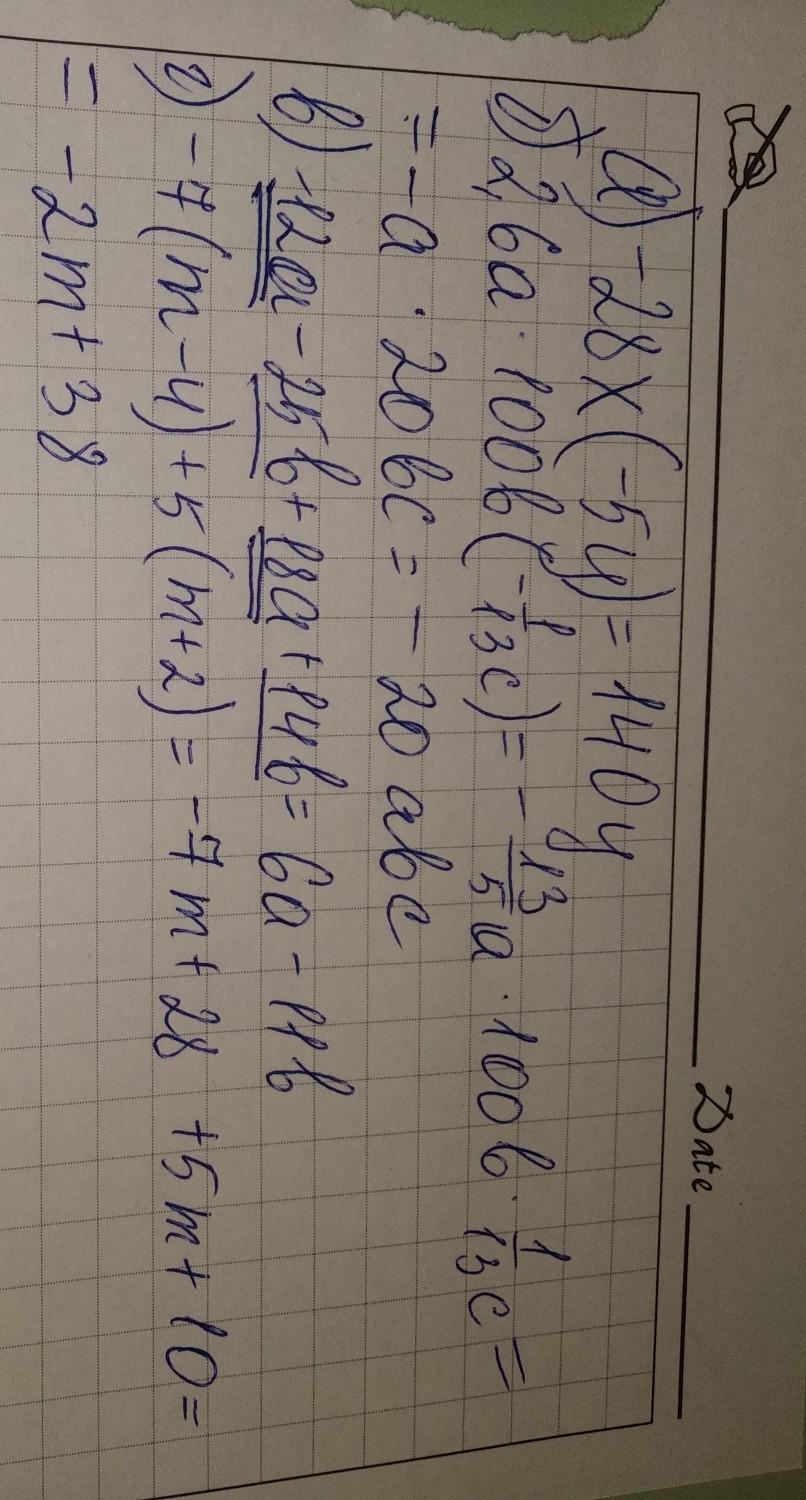 Date
а) -28x(-5y) = 140y
б) 2,6a · 100b(-1/13c) = -13/5a · 100b · 1/13c =
= -a · 20bc = -20abc
в) -12a - 25b + 18a + 14b = 6a - 11b
г) -7(m-4) + 5(m+2) = -7m + 28 + 5m + 10 =
= -2m + 38